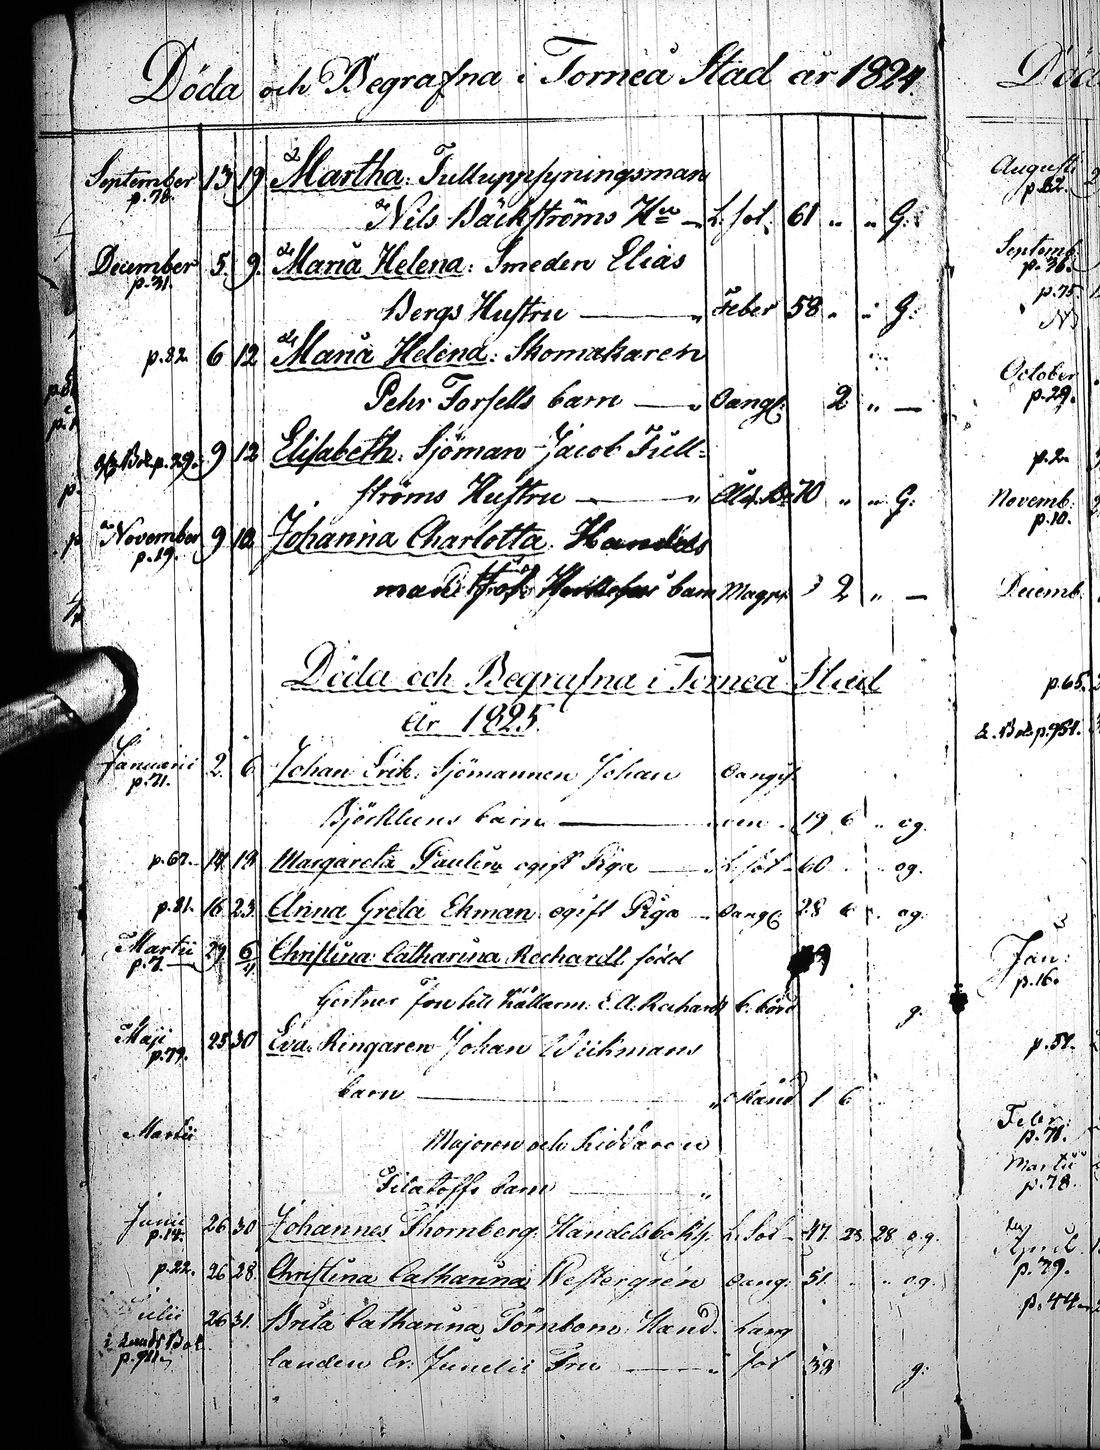 Döda och Begrafna i Torneå Stad år 1824.
September 13 19 Martha: Tulluppsyningsman
p. 78. Nils Bäckströms Hu L. sot. 61 " " G:
December 5. 9. Maria Helena: Smeden Elias
p. 31. Bergs Hustru — " Feber 58 " " G:
p. 82. 6 12 Maria Helena: Skomakaren
Pehr Forsells barn — " Oangf: 2 " —
p. 29. 9 12 Elisabeth: Sjöman Jacob Full-
ströms Hustru — " 70 " " G:
November 9 12 Johanna Charlotta: Handels
p. 19. barn 2 " —
Döda och Begrafna i Torneå Stad
År 1825.
Januarii 2. 6 Johan Erik: Sjömannen Johan Oangif
p. 71. Björkluns barn — ven 19 6 " og.
p. 67. 14 19 Margareta Paulin ogift Piga — L. sot 60 og.
p. 81. 16 23. Anna Greta Ekman ogift Piga Oangf. 28 6 og.
Martii 29 6 Christina Catharina Rechardt född
p. 7. fru till Källarm: E. A. Rechardt g.
Maji 25 30 Eva: Ringaren Johan Wichmans
p. 79. barn — " okänd 1 6
Martii Majoren och Riddaren
Filatoffs barn — "
Junii 26 30 Johannes Thornberg: L. Sot 47. 23 28 og.
p. 14.
p. 22. 26 28. Christina Catharina Westergrén Oang: 51. " " og.
Julii 26 31. Brita Catharina Törnbom: Hand. Lung
p. 911 landen Er. Junelii Fru — " sot 38 g:
Död
Augusti
p. 82.
Septemb.
p. 36.
p. 75
October
p. 29.
p. 2.
Novemb:
p. 10.
Decemb.
p. 65.
p. 951.
Jan:
p. 16.
p. 51.
Febr:
p. 71.
Martii
p. 78.
April
p. 79.
p. 44